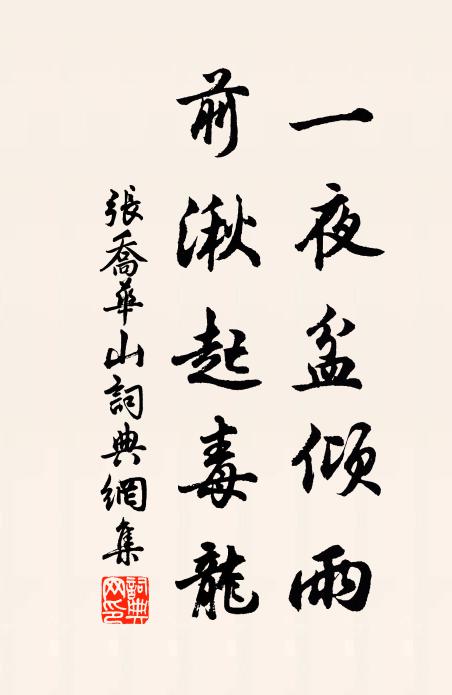 一夜盆傾雨
前湫起毒龍
張喬華山詞典網集
詞典網印